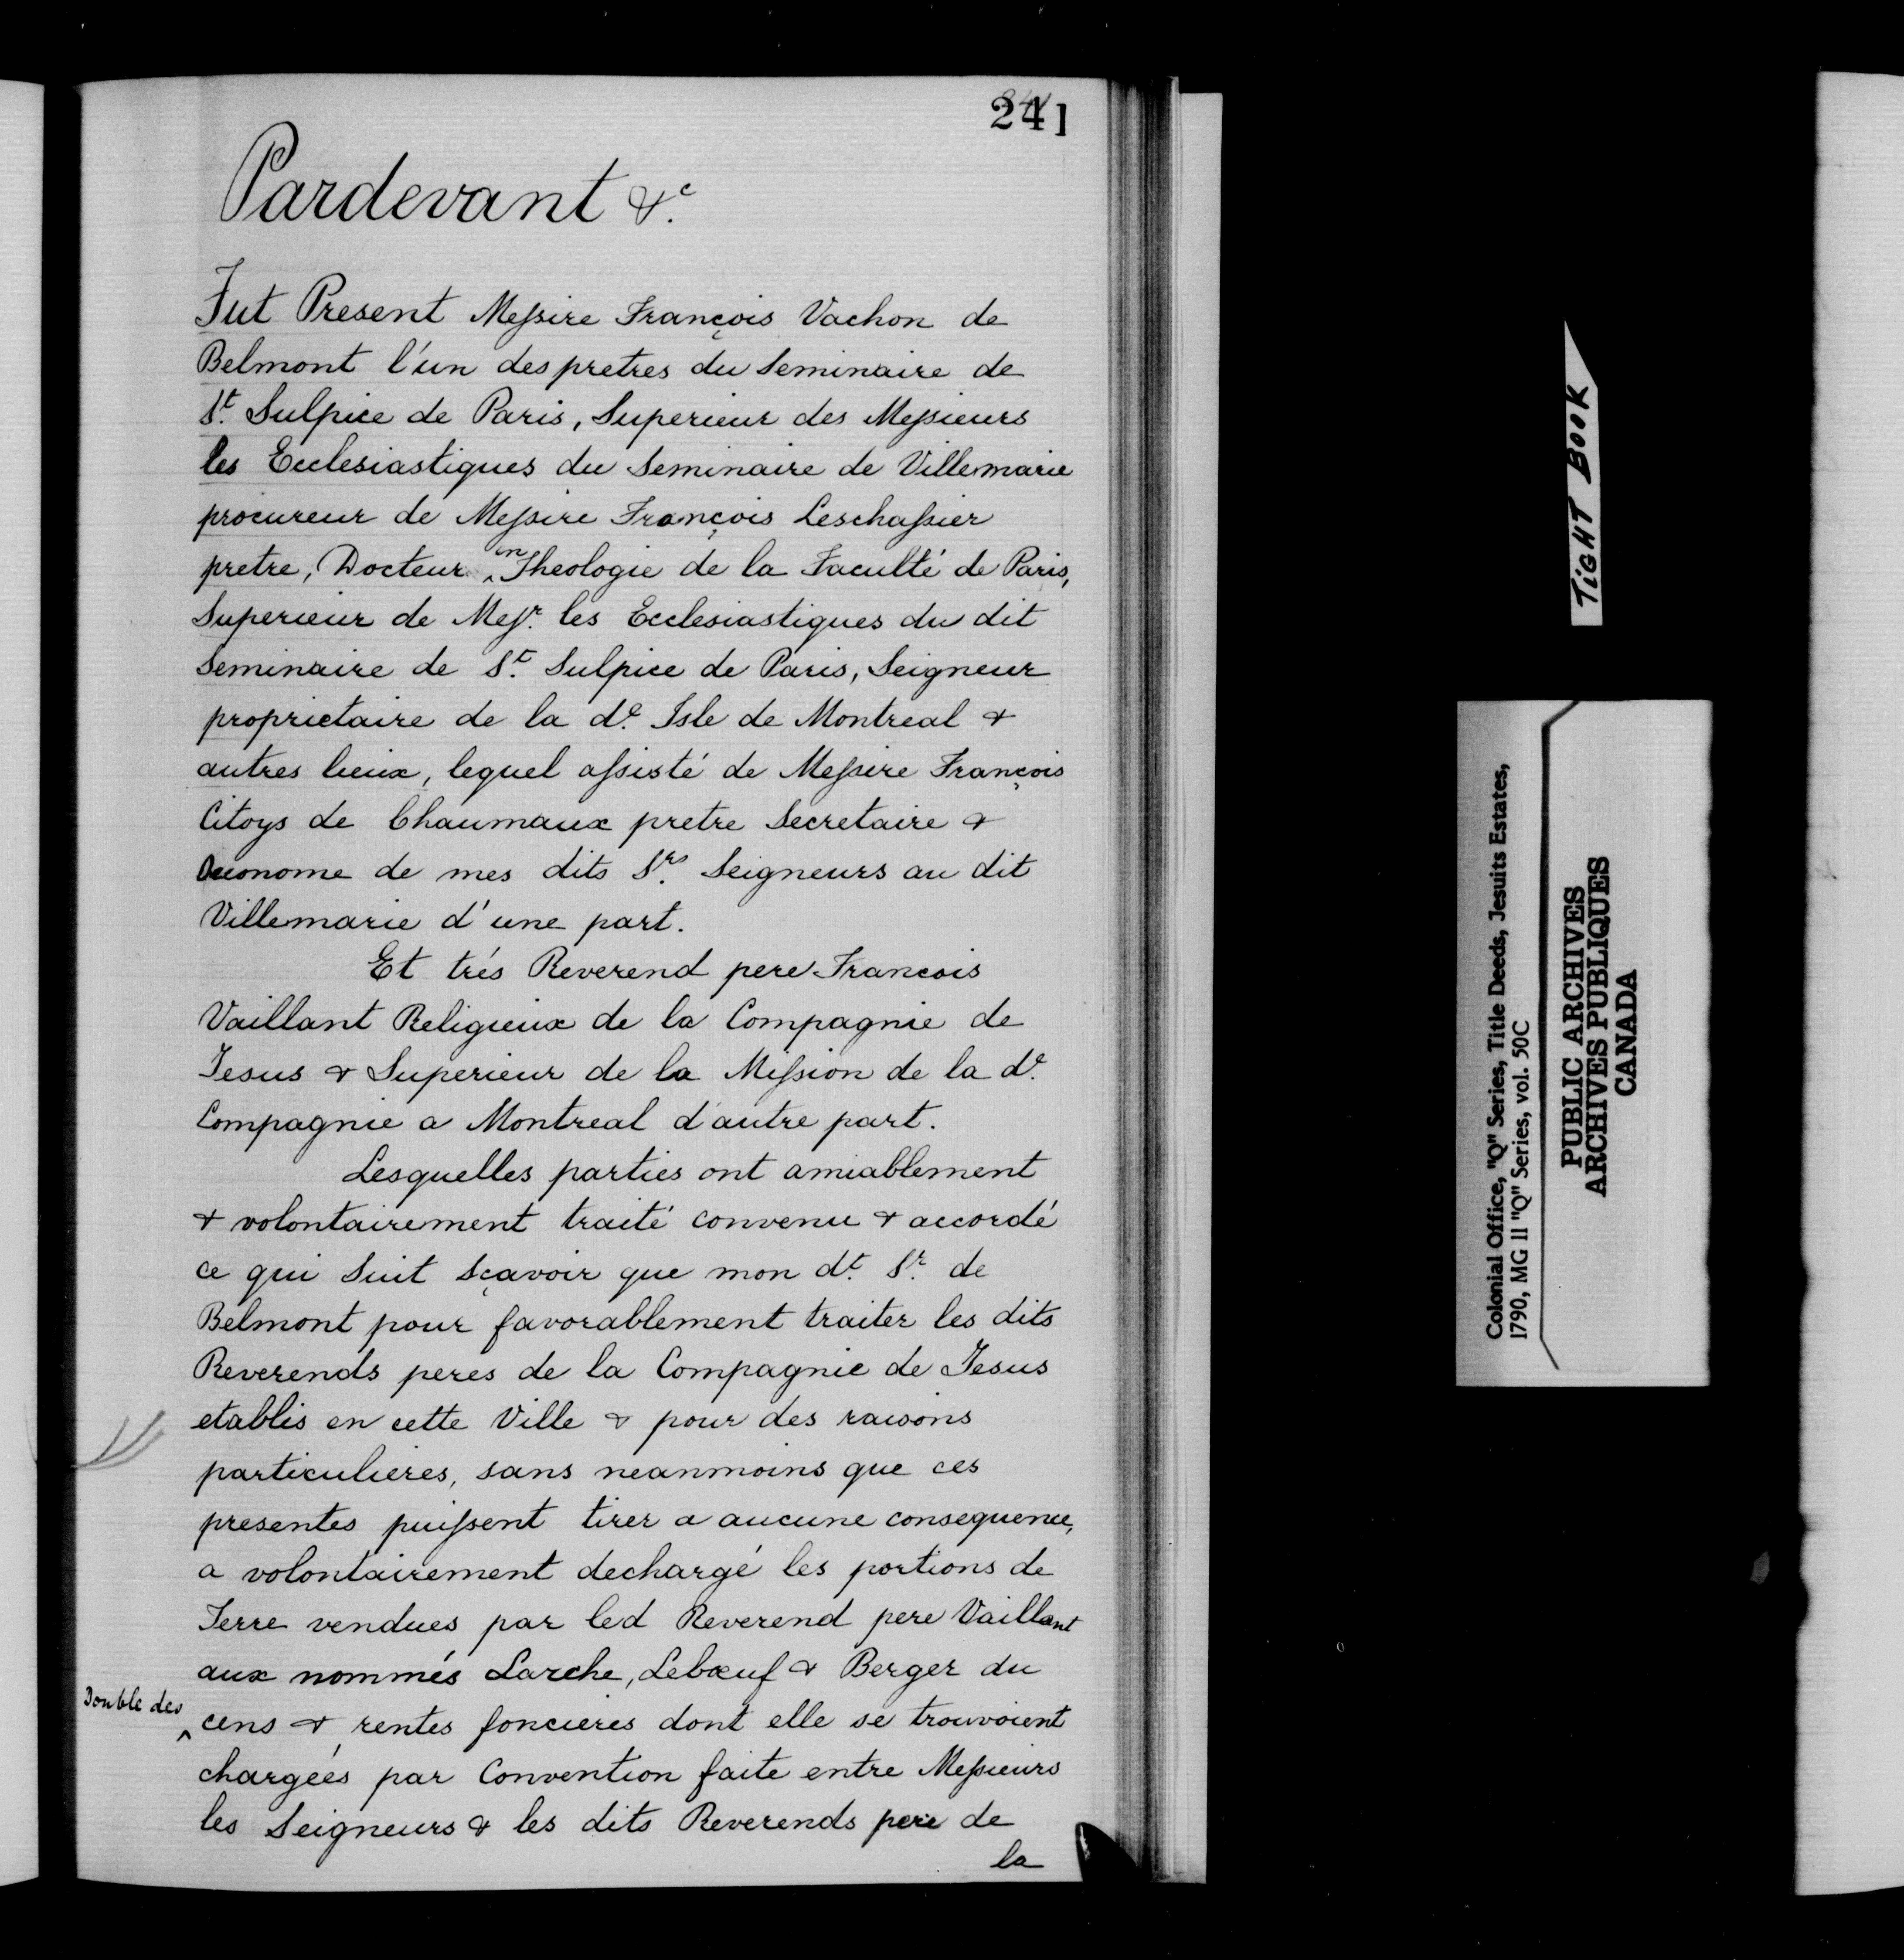 241
Pardevant &c.
Fut Present Messire François Vachon de
Belmont l'un des pretres du Seminaire de
St. Sulpice de Paris, Superieur des Messieurs
les Ecclesiastiques du Seminaire de Villemarie
procureur de Messire François Leschassier
pretre, Docteur en Theologie de la Faculté de Paris,
Superieur de Messr. les Ecclesiastiques du dit
Seminaire de St. Sulpice de Paris, Seigneur
proprietaire de la de. Isle de Montreal &
autres lieux, lequel assisté de Messire François
Citoys de Chaumaux pretre Secretaire &
Oeconome de mes dits Srs. Seigneurs au dit
Villemarie d'une part.
Et trés Reverend pere Francois
Vaillant Religieux de la Compagnie de
Jesus & Superieur de la Mission de la de.
Compagnie a Montreal d'autre part.
Lesquelles parties ont amiablement
& volontairement traité convenu & accordé
ce qui Suit sçavoir que mon dt. Sr. de
Belmont pour favorablement traiter les dits
Reverends peres de la Compagnie de Jesus
etablis en cette Ville & pour des raisons
particulieres, sans neanmoins que ces
presentes puissent tirer a aucune consequence,
a volontairement dechargé les portions de
Terre vendues par led Reverend pere Vaillant
aux nommés Larche, Lebœuf & Berger du
Double des
cens & rentes foncieres dont elle se trouvoient
chargées par Convention faite entre Messieurs
les Seigneurs & les dits Reverends pere de
la
TIGHT BOOK
Colonial Office, "Q" Series, Title Deeds, Jesuits Estates,
1790, MG 11 "Q" Series, vol. 50C
PUBLIC ARCHIVES
ARCHIVES PUBLIQUES
CANADA